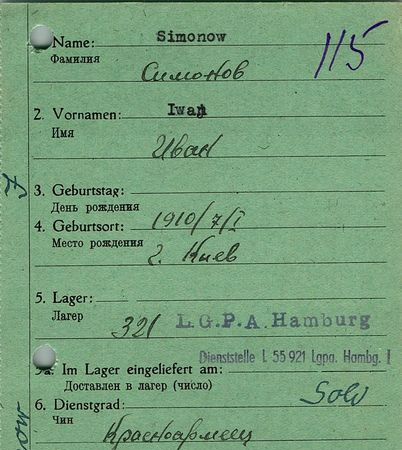 Name: Simonow 115
Фамилия
Симонов
2. Vornamen: Iwan
Имя
Иван
3. Geburtstag:
День рождения
4. Geburtsort: 1910/7/I
Место рождения
г. Киев
5. Lager:
Лагерь
321 L.G.P.A. Hamburg
Dienststelle L 55 921 Lgpa. Hambg. I
5a. Im Lager eingeliefert am:
Доставлен в лагерь (число)
6. Dienstgrad: Sold
Чин
Красноармеец